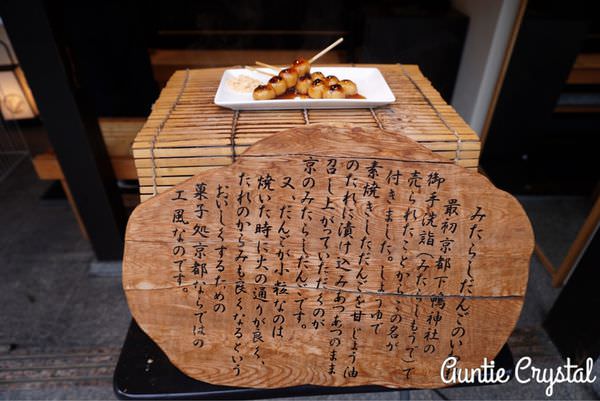 みたらしだんごのいわれ
最初京都下鴨神社の
御手洗詣(みたらしもうで)で
売られたことからこの名が
付きました。しょうゆで
素焼きしただんごを甘じょう油
のたれに漬け込みあつあつのまま
召し上がっていただくのが
京のみたらしだんごです。
又、だんごが小粒なのは
焼いた時に火の通りが良く、
たれのからみも良くなるという
おいしくするための
菓子処京都ならではの
工風なのです。
Auntie Crystal